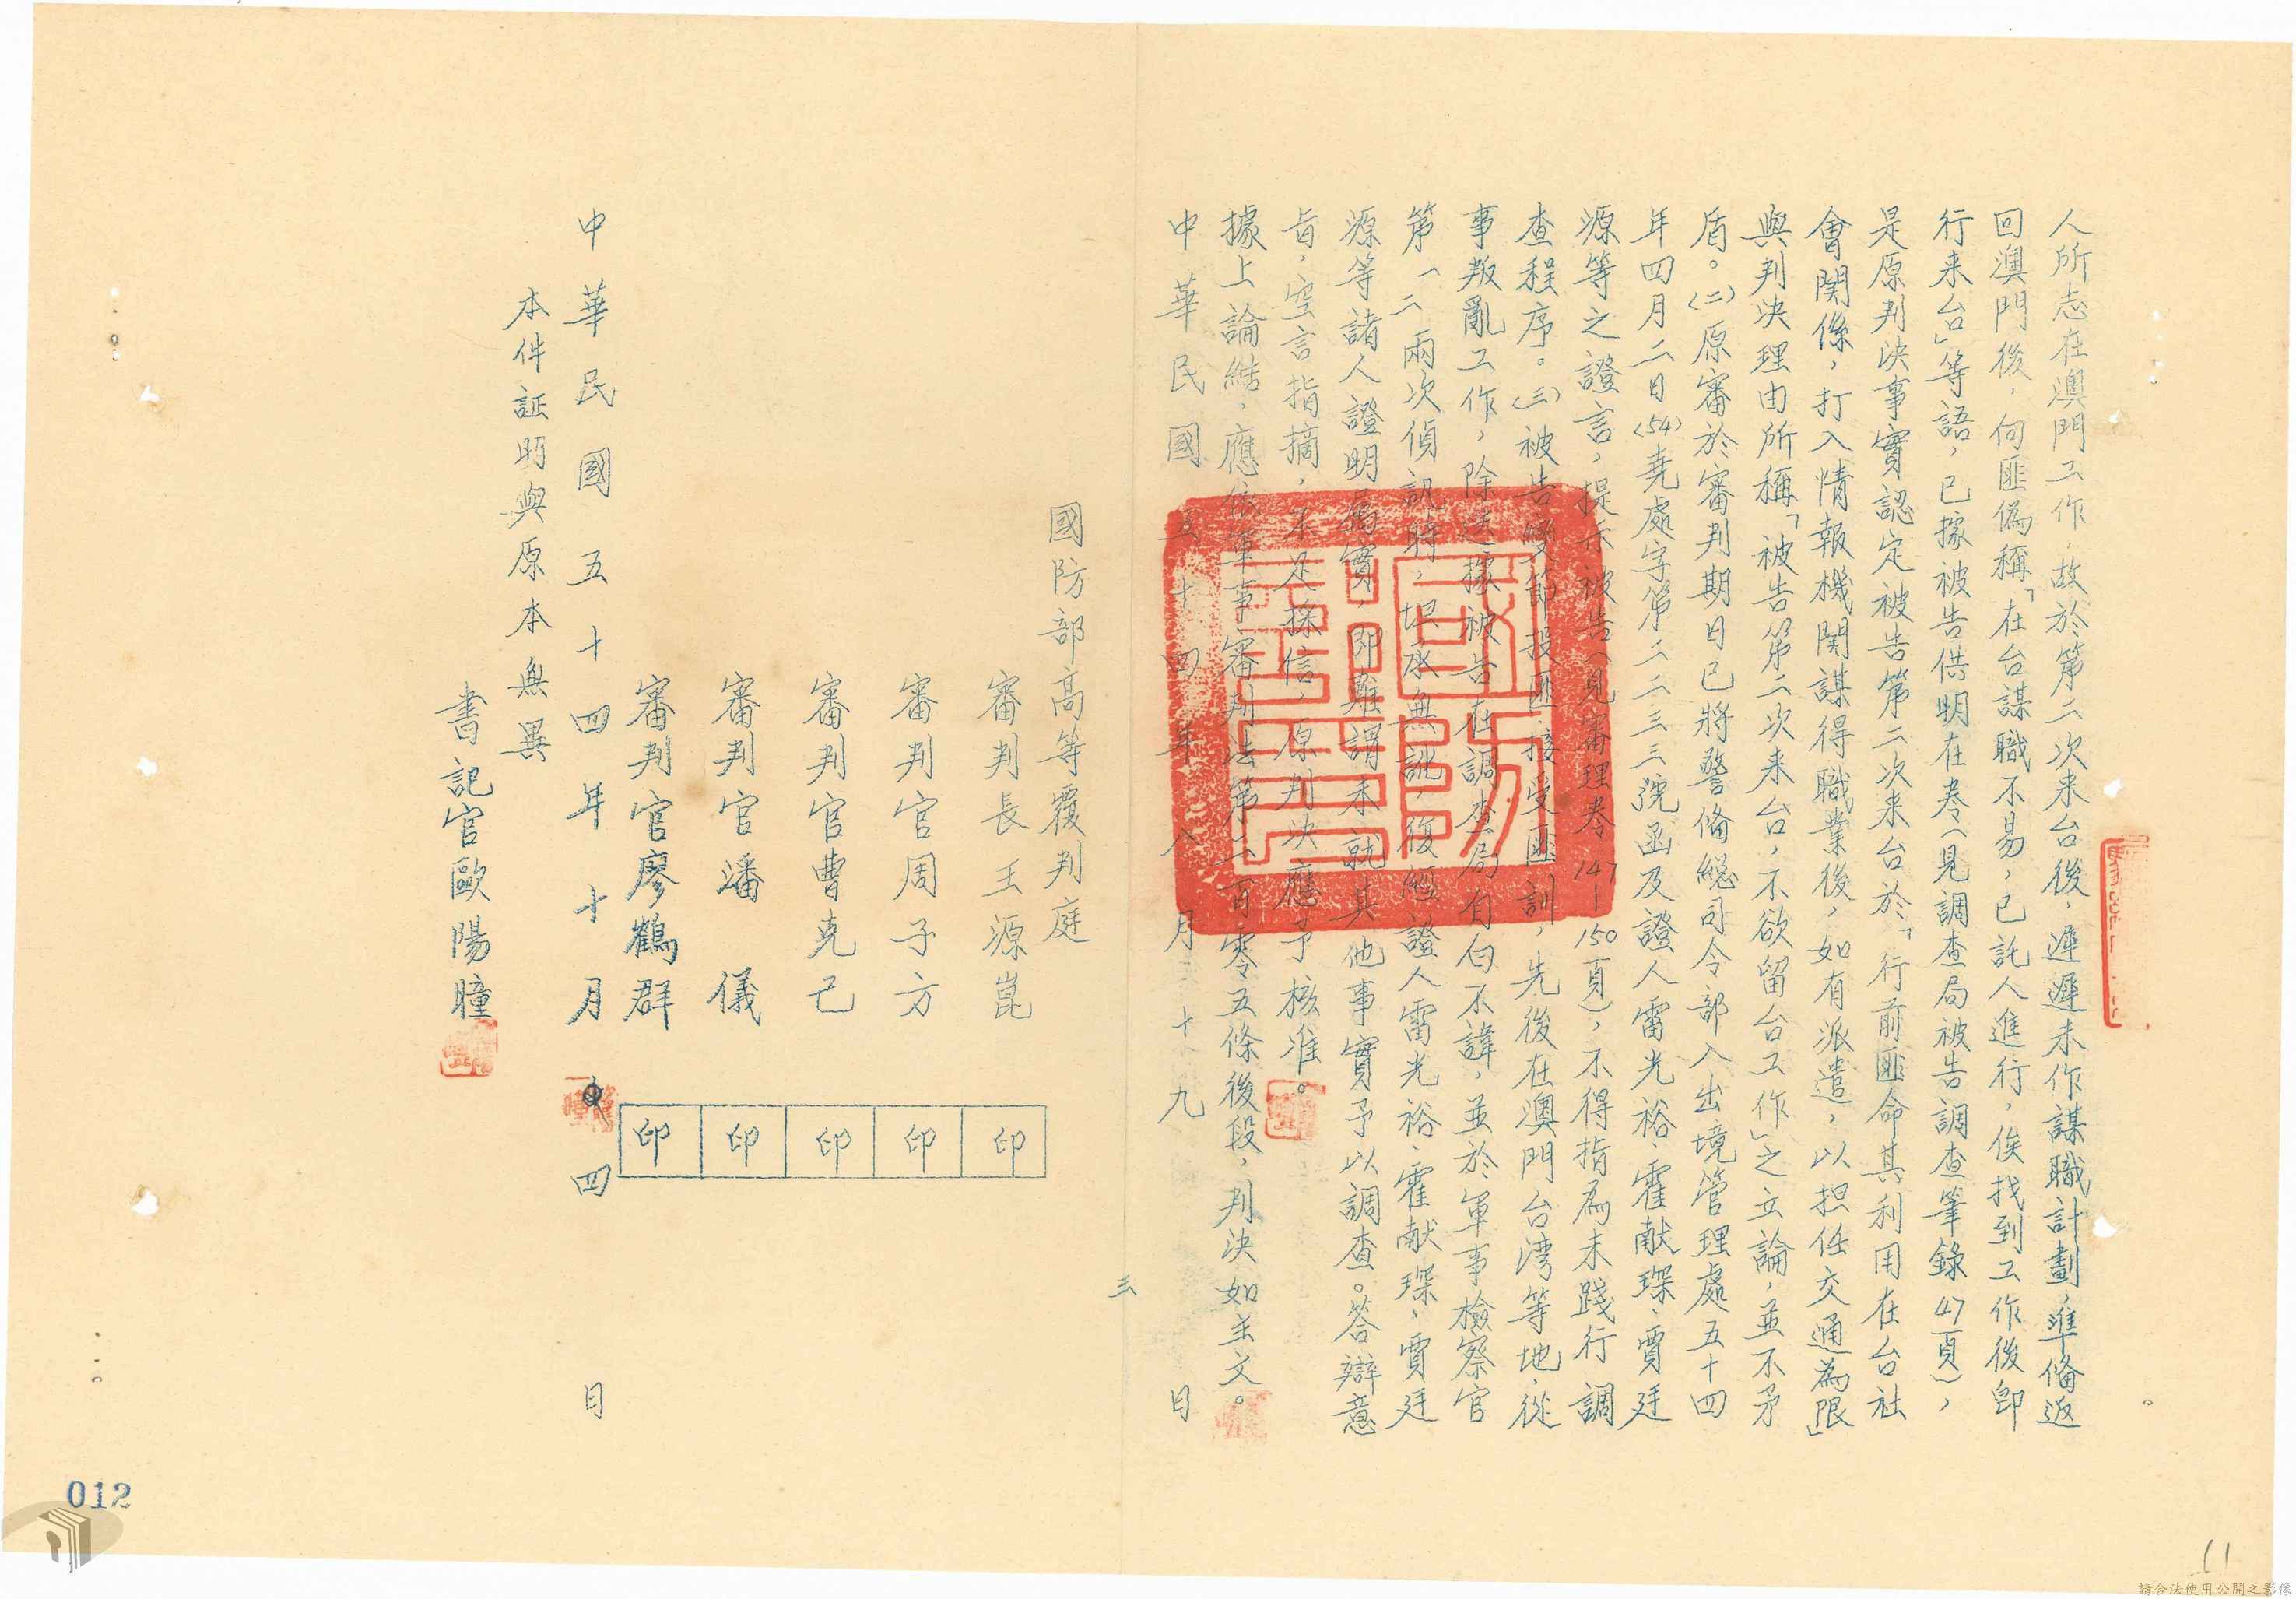 人所志在澳門工作，故於第二次来台後，遲遲未作謀職計劃，準備返
回澳門後，向匪偽稱「在台謀職不易，已託人進行，俟找到工作後卽
行来台」等語，已據被告供明在卷（見調查局被告調查筆錄47頁），
是原判決事實認定被告第二次来台於「行前匪命其利用在台社
會関係，打入情報機関謀得職業後，如有派遣，以担任交通為限」
與判決理由所稱「被告第二次来台，不欲留台工作」之立論，並不矛
盾。（二）原審於審判期日已將警備総司令部入出境管理處五十四
年四月二日（54）堯處字第二二三三號函及證人雷光裕、霍献琛、賈廷
源等之證言，提示被告（見審理卷147—150頁），不得指為未踐行調
查程序。（三）被告變節投匪接受匪訓，先後在澳門台湾等地，從
事叛亂工作，除迭據被告在調查局自白不諱，並於軍事檢察官
第一二兩次偵訊時，坦承無訛，復經證人雷光裕、霍献琛、賈廷
源等諸人證明屬實，即難謂未就其他事實予以調查。答辯意
旨，空言指摘，不足採信，原判決應予核准。
據上論結，應依軍事審判法第二百零五條後段，判決如主文。
中華民國五十四年八月三十九日
三
國防部高等覆判庭
審判長王源崑 印
審判官周子方 印
審判官曹克己 印
審判官潘儀 印
審判官廖鶴群 印
中華民國五十四年十月四日
本件証明與原本無異
書記官歐陽瞳
012
11
請合法使用公開之影像